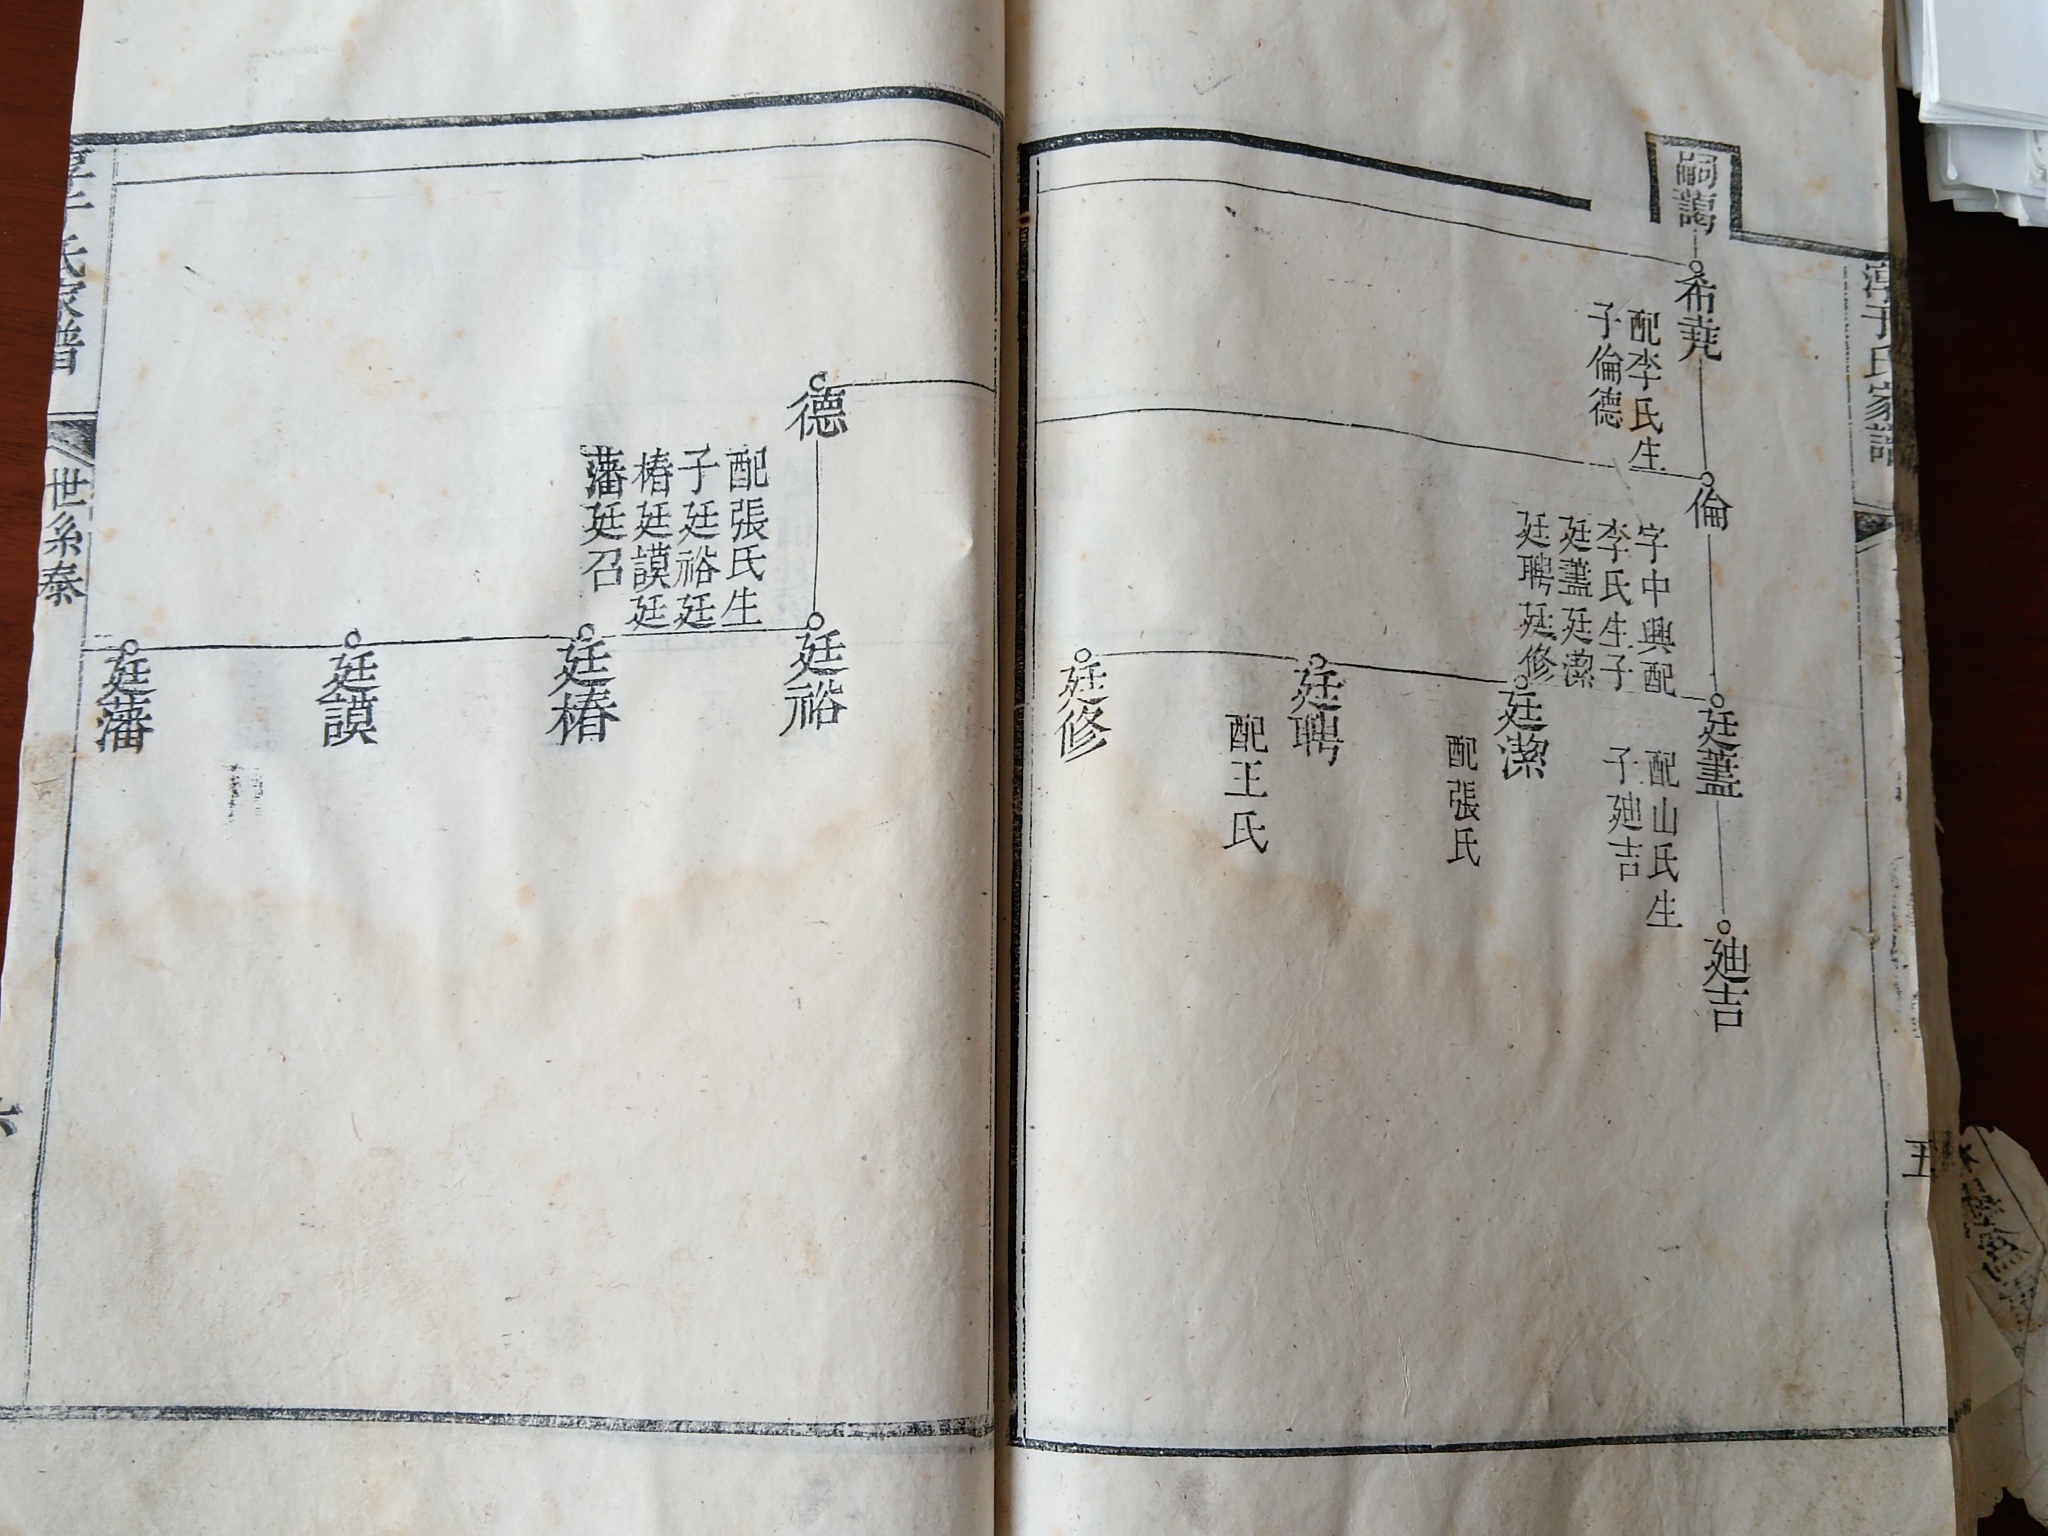 淳于氏家譜
五
嗣藹
希堯
配李氏生
子倫德
倫
字中興配
李氏生子
廷藎廷潔
廷聘廷修
廷藎
配山氏生
子廸吉
廸吉
廷潔
配張氏
廷聘
配王氏
廷修
德
配張氏生
子廷裕廷
椿廷謨廷
藩廷召
廷裕
廷椿
廷謨
廷藩
淳于氏家譜
世系泰
六